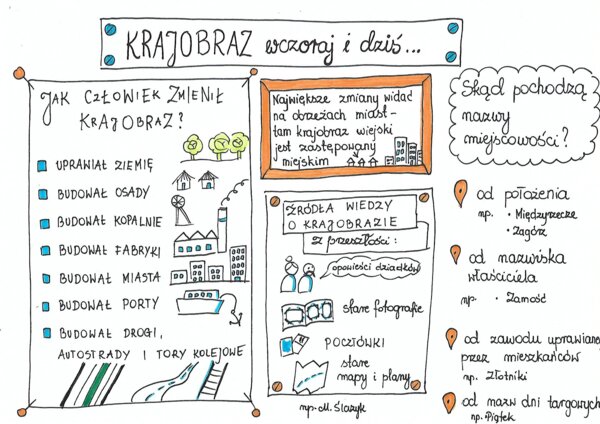 KRAJOBRAZ wczoraj i dziś...
JAK CZŁOWIEK ZMIENIŁ
KRAJOBRAZ?
UPRAWIAŁ ZIEMIĘ
BUDOWAŁ OSADY
BUDOWAŁ KOPALNIE
BUDOWAŁ FABRYKI
BUDOWAŁ MIASTA
BUDOWAŁ PORTY
BUDOWAŁ DROGI,
AUTOSTRADY I TORY KOLEJOWE
Największe zmiany widać
na obrzeżach miast -
tam krajobraz wiejski
jest zastępowany
miejskim
ŹRÓDŁA WIEDZY
O KRAJOBRAZIE
Z przeszłości:
opowieści dziadków
stare fotografie
POCZTÓWKI
stare
mapy i plany
np. M. Ślązyk
Skąd pochodzą
nazwy
miejscowości?
od położenia
np. • Międzyrzecze
• Zagórz
od nazwiska
właściciela
np. • Zamość
od zawodu uprawianego
przez mieszkańców
np. Złotniki
od nazw dni targowych
np. Piątek